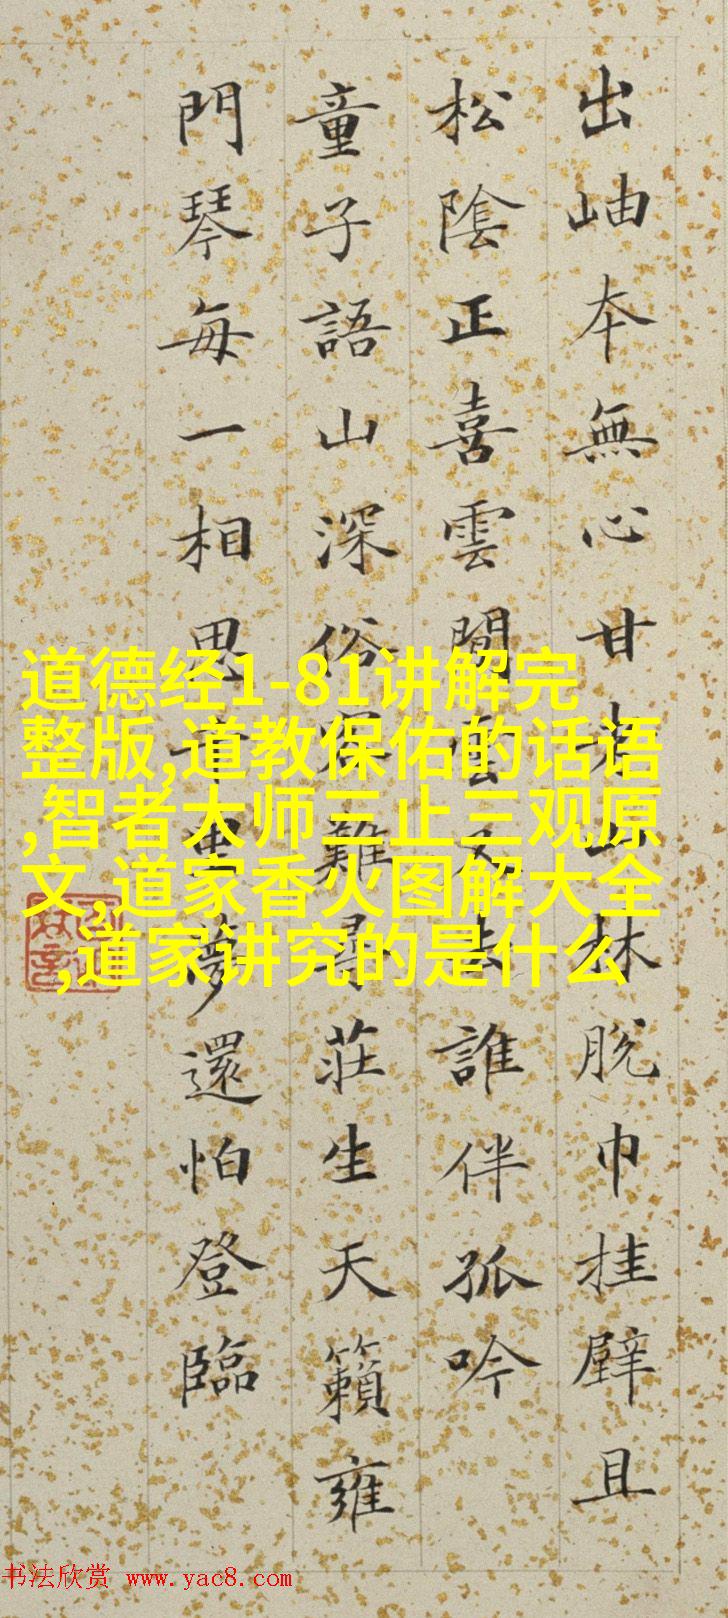 出岫本無心甘老山林脫巾挂壁且
松陰正喜雲閒雲又去誰伴孤吟
童子語山深俗客難尋莊生天籟雍
門琴每一相思千里夢還怕登臨
道德经1-81讲解完
整版,道教保佑的话语
,智者大师三止三观原
文,道家香火图解大全
,道家讲究的是什么
书法欣赏 www.yac8.com